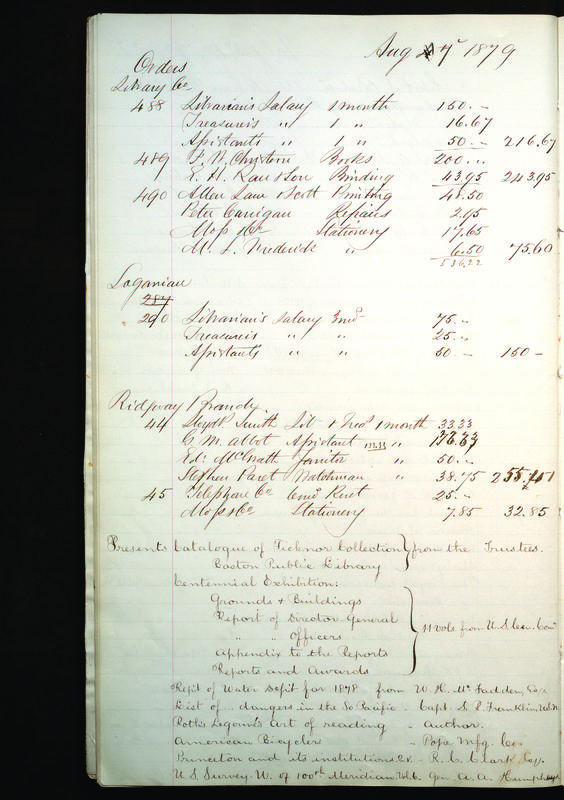 Aug 7" 1879
Orders
Library Co
488 Librarian's Salary 1 month 150.--
Treasurer's " 1 " 16.67
Assistant's " 1 " 50.-- 216.67
489 F. W. Christern Books 200.--
E. H. Rau & Son Binding 43.95 243.95
490 Allen Lane & Scott Printing 48.50
Peter Carrigan Repairs 2.95
Moss & Co Stationery 17.65
Mr. L. Frederick " 6.50 75.60
536.22
Loganian
289
290 Librarian's Salary 3 mos 75.--
Treasurer's " " 25.--
Assistant's " " 50.-- 150 --
Ridgway Branch
44 Lloyd P. Smith Lib & Treas 1 month 33.33
G. M. Abbot Assistant 133.33 "
Edw McGrath Janitor " 50.--
Stephen Paret Watchman " 38.75
45 Telephone Co 6 mos Rent 25.--
Moss & Co Stationery 7.85 32.85
Presents Catalogue of Ticknor Collection } from the Trustees.
Boston Public Library
Centennial Exhibition:
Grounds & Buildings
Report of Director-General
" " Officers } 11 vols. from U.S. Cen. Com
Appendix to the Reports
Reports and Awards
Rep't of Water Dep't for 1878 from W. H. McFadden, Esq.
List of .. dangers in the So Pacific - Capt. S. R. Franklin, U.S.N
Potts Legouvé's Art of reading " Author.
American Bicycler " Pope Mfg. Co.
Princeton and its institutions. 2v. - R. C. Clark, Esq.
U.S. Survey W. of 100th Meridian, Vol. 6. Gen. A. A. Humphreys